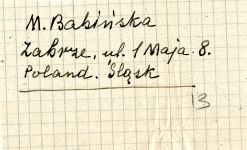 M. Babińska
Zabrze, ul. 1 Maja 8.
Poland. Śląsk
13